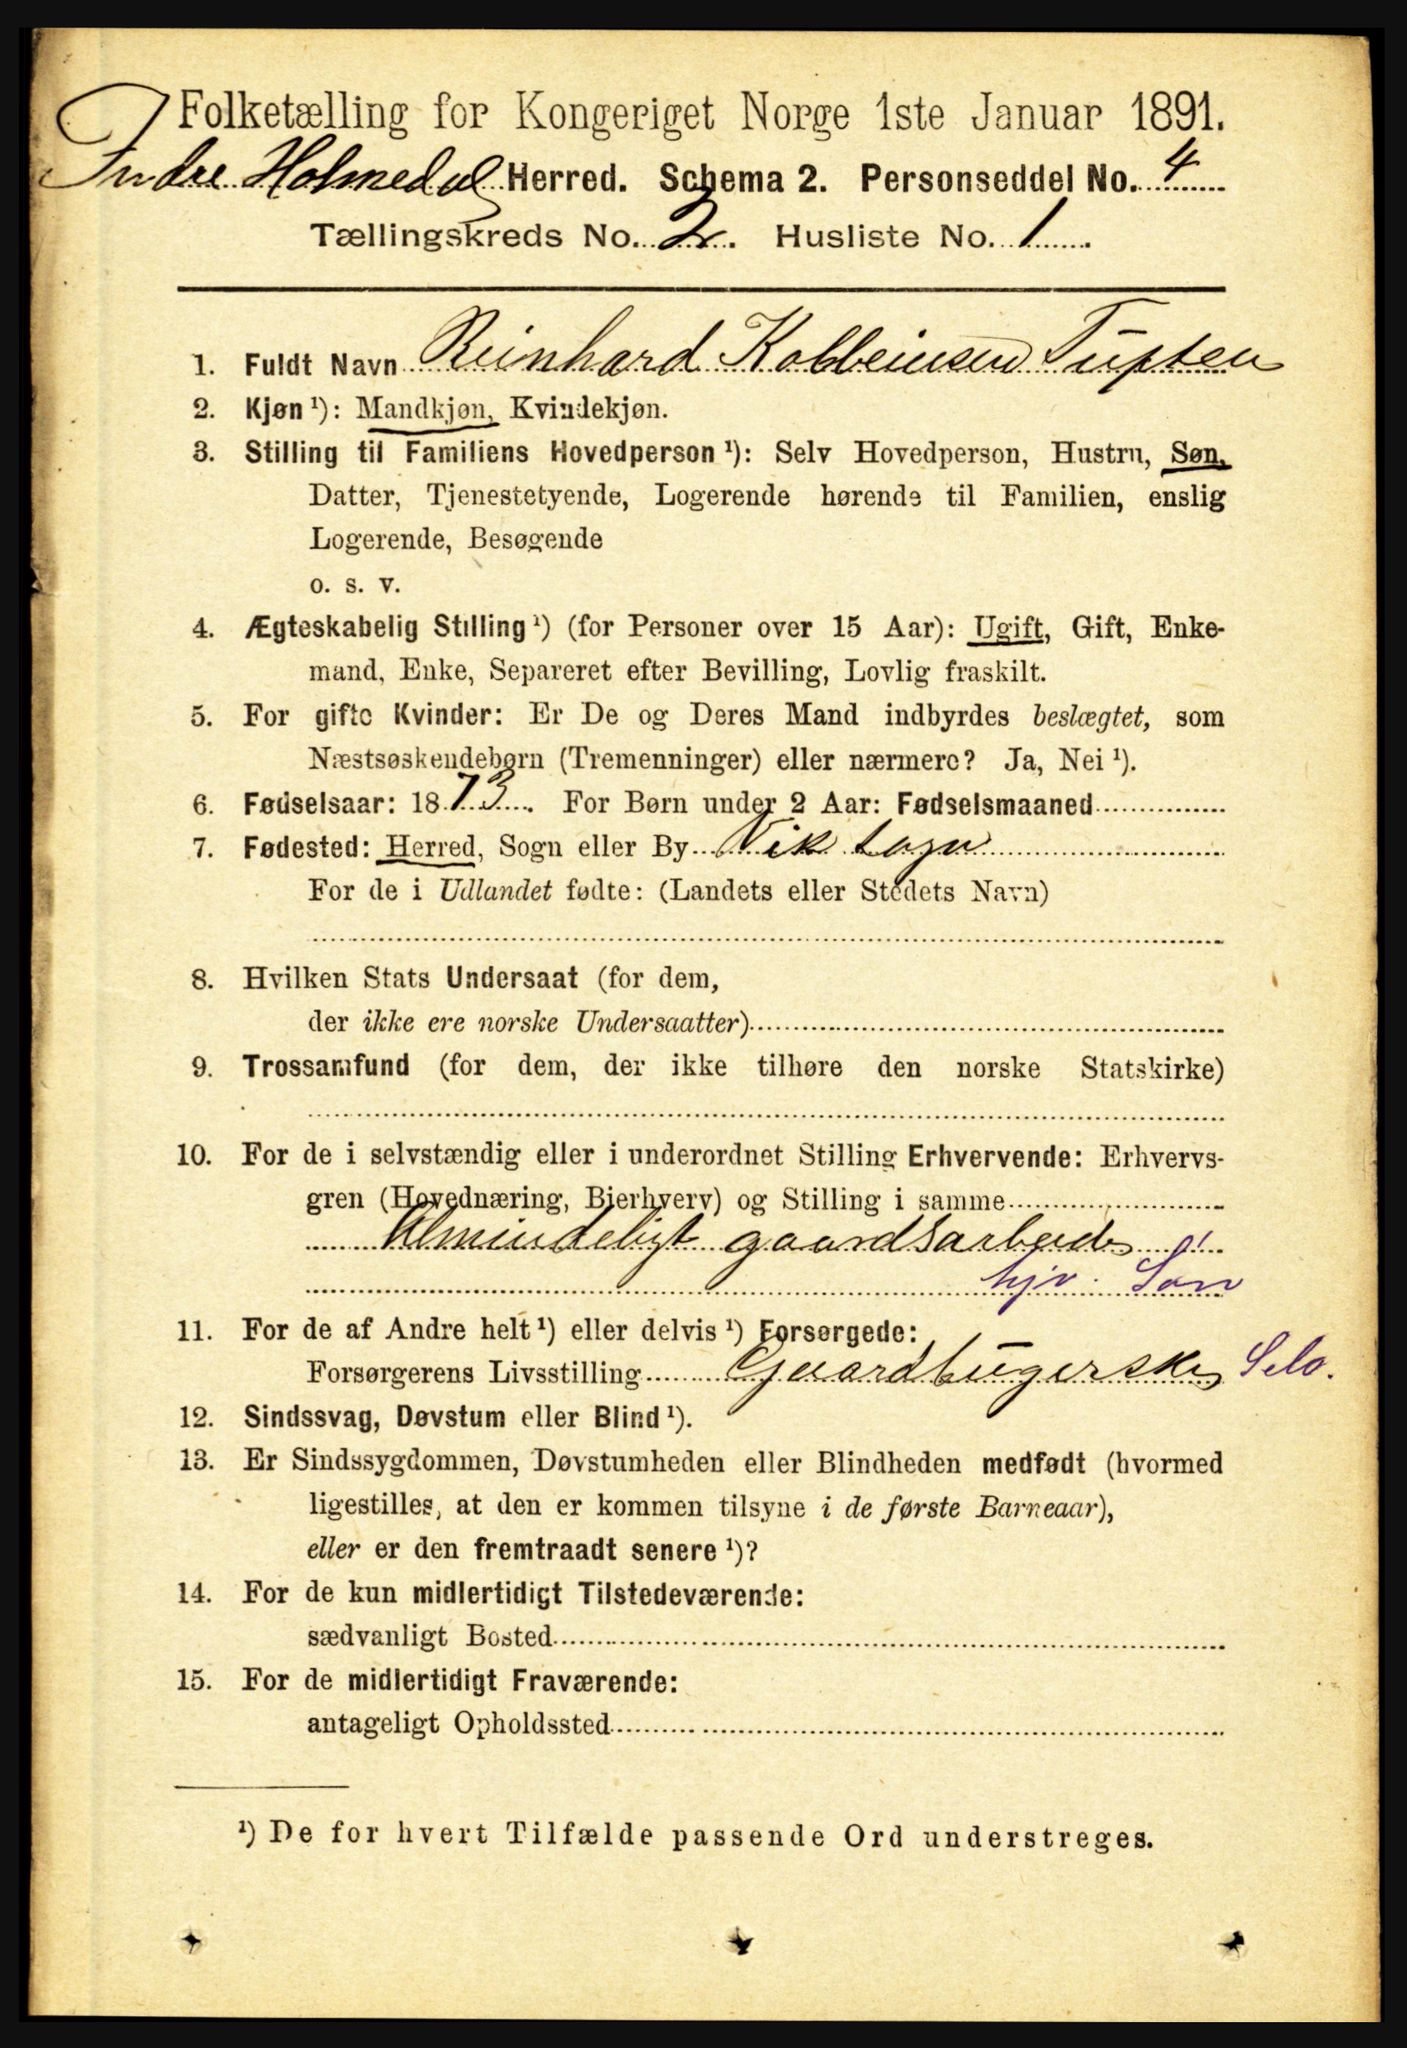 Folketælling for Kongeriget Norge 1ste Januar 1891.
Indre Holmedal Herred. Schema 2. Personseddel No. 4
Tællingskreds No. 2. Husliste No. 1
1. Fuldt Navn Reinhard Kolbeinsen Tuften
2. Kjøn ¹): Mandkjøn, Kvindekjøn.
3. Stilling til Familiens Hovedperson ¹): Selv Hovedperson, Hustru, Søn,
Datter, Tjenestetyende, Logerende hørende til Familien, enslig
Logerende, Besøgende
o. s. v.
4. Ægteskabelig Stilling ¹) (for Personer over 15 Aar): Ugift, Gift, Enke-
mand, Enke, Separeret efter Bevilling, Lovlig fraskilt.
5. For gifte Kvinder: Er De og Deres Mand indbyrdes beslægtet, som
Næstsøskendebørn (Tremenninger) eller nærmere? Ja, Nei ¹).
6. Fødselsaar: 1873. For Børn under 2 Aar: Fødselsmaaned
7. Fødested: Herred, Sogn eller By Vik Sogn
For de i Udlandet fødte: (Landets eller Stedets Navn)
8. Hvilken Stats Undersaat (for dem,
der ikke ere norske Undersaatter)
9. Trossamfund (for dem, der ikke tilhøre den norske Statskirke)
10. For de i selvstændig eller i underordnet Stilling Erhvervende: Erhvervs-
gren (Hovednæring, Bierhverv) og Stilling i samme
Almindeligt gaardsarbeide
hjv. Søn
11. For de af Andre helt ¹) eller delvis ¹) Forsørgede:
Forsørgerens Livsstilling Gaardbrugerske Selv.
12. Sindssvag, Døvstum eller Blind ¹).
13. Er Sindssygdommen, Døvstumheden eller Blindheden medfødt (hvormed
ligestilles, at den er kommen tilsyne i de første Barneaar),
eller er den fremtraadt senere ¹)?
14. For de kun midlertidigt Tilstedeværende:
sædvanligt Bosted
15. For de midlertidigt Fraværende:
antageligt Opholdssted
¹) De for hvert Tilfælde passende Ord understreges.